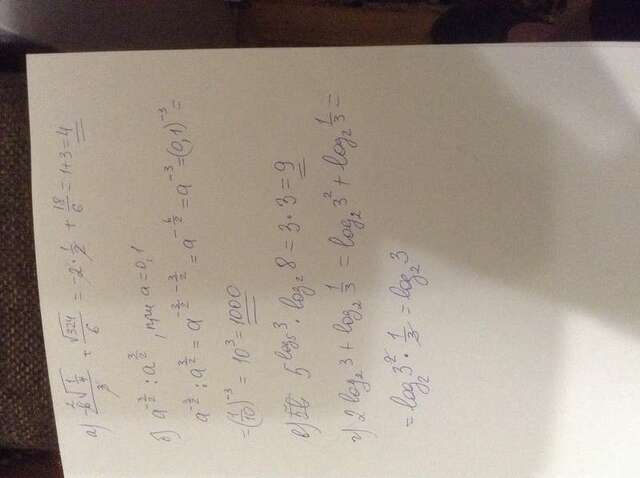 а) -6√(1/4) / 3 + √324 / 6 = -2 · 1/2 + 18/6 = 1+3 = 4
б) a^(-3/2) : a^(3/2), при a = 0,1
a^(-3/2) : a^(3/2) = a^(-3/2 - 3/2) = a^(-6/2) = a^(-3) = (0,1)^(-3) =
= (1/10)^(-3) = 10^3 = 1000
в) 5^(log₅3) · log₂8 = 3 · 3 = 9
г) 2log₂3 + log₂ 1/3 = log₂3² + log₂ 1/3 =
= log₂3² · 1/3 = log₂3